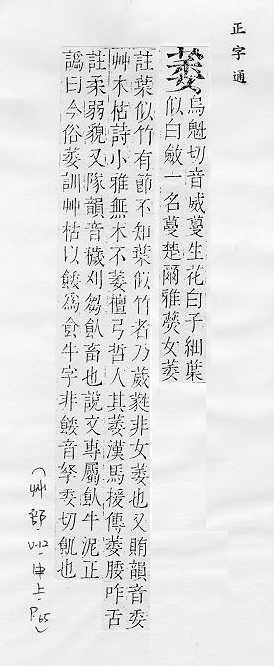 正字通
萎
烏魁切音威蔓生花白子細葉
似白斂一名蔓楚爾雅女萎
註葉似竹有節不知葉似竹者乃葳蕤非女萎也又賄韻音委
艸木枯詩小雅無木不萎檀弓哲人其萎漢馬援傳萎腇咋舌
註柔弱貌又隊韻音穢刈芻飤畜也說文專屬飤牛泥正
譌曰今俗萎訓艸枯以餧爲食牛字非餧音拏委切飢也
(艸部 V.12, 申上, P.65)